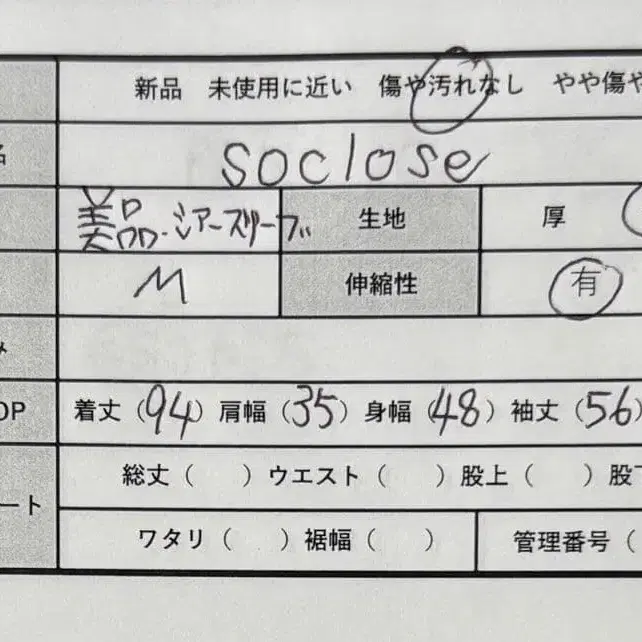 新品 未使用に近い 傷や汚れなし やや傷や
名 soclose
美品.シアースリーブ 生地 厚
M 伸縮性 有
み
OP 着丈(94) 肩幅(35) 身幅(48) 袖丈(56)
総丈( ) ウエスト( ) 股上( ) 股下
ート
ワタリ( ) 裾幅( ) 管理番号(